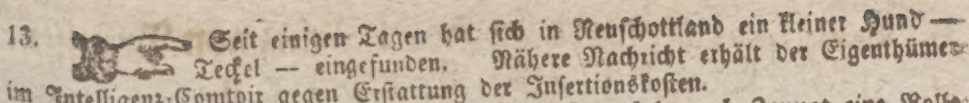 13. Seit einigen Tagen hat sich in Neuschottland ein kleiner Hund —
Teckel — eingefunden. Nähere Nachricht erhält der Eigenthümer
im Intelligenz-Comtoir gegen Erstattung der Insertionskosten.